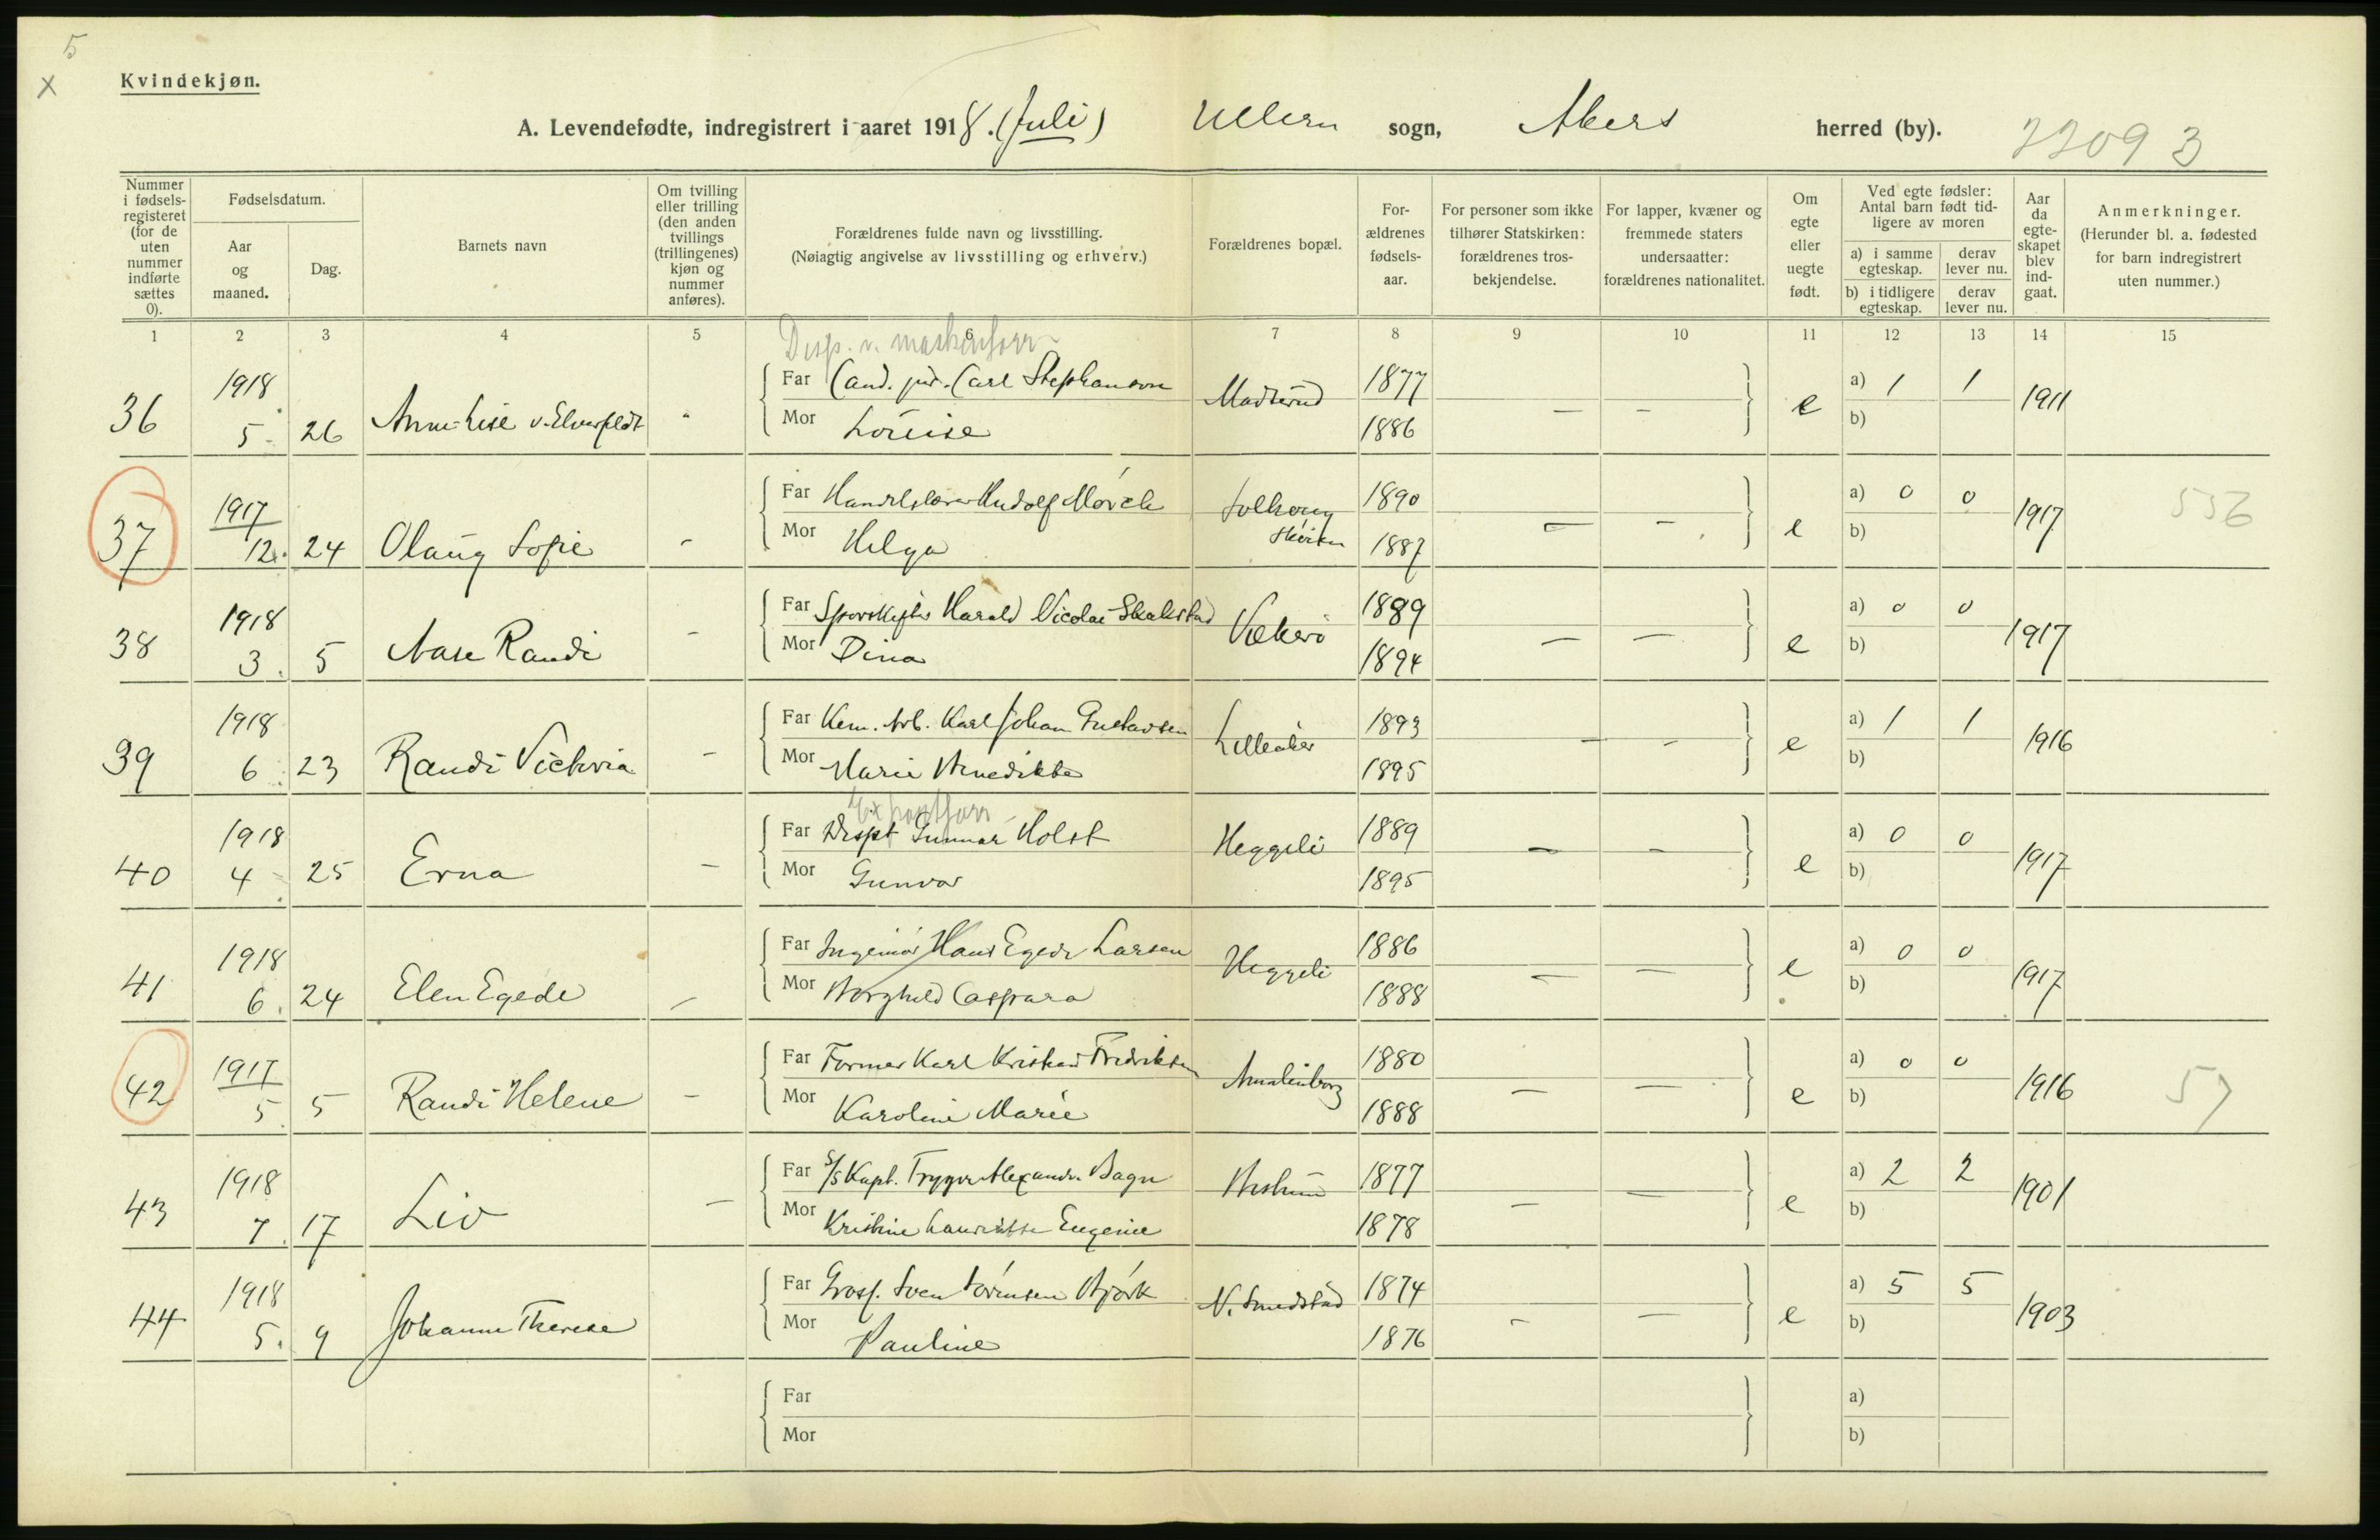 5
x
Kvindekjøn.
A. Levendefødte, indregistrert i aaret 1918. (Juli) Ullern sogn, Akers herred (by).
Nummer i fødselsregisteret (for de uten nummer indførte sættes 0).
Fødselsdatum.
Aar og maaned.
Dag.
Barnets navn
Om tvilling eller trilling (den anden tvillings (trillingenes) kjøn og nummer anføres).
Forældrenes fulde navn og livsstilling. (Nøiagtig angivelse av livsstilling og erhverv.)
Forældrenes bopæl.
Forældrenes fødselsaar.
For personer som ikke tilhører Statskirken: forældrenes trosbekjendelse.
For lapper, kvæner og fremmede staters undersaatter: forældrenes nationalitet.
Om egte eller uegte født.
Ved egte fødsler: Antal barn født tidligere av moren
a) i samme egteskap. derav lever nu.
b) i tidligere egteskap. derav lever nu.
Aar da egteskapet blev indgaat.
Anmerkninger. (Herunder bl. a. fødested for barn indregistrert uten nummer.)
1 2 3 4 5 6 7 8 9 10 11 12 13 14 15
36 1918 5 26 Anne-Lise v. Elverfeldt Far Cand. jur. Carl Stephanson Madserud 1877 — — e a) 1 1 1911
Mor Louise 1886 b)
37 1917 12. 24 Olaug Sofie - Far Handelslærer Rudolf Mørch Solhaug Skøien 1890 — — e a) 0 0 1917 536
Mor Helga 1887 b)
38 1918 3. 5 Aase Randi - Far Sporskifter Harald Nicolai Skakstad Vækerö 1889 — — e a) 0 0 1917
Mor Dina 1894 b)
39 1918 6 23 Randi Victoria - Far Kem. Arb. Karl Johan Gustavsen Lilleaker 1893 — - e a) 1 1 1916
Mor Marie Benedikte 1895 b)
40 1918 4 25 Erna - Far Disp. Gunnar Holst Heggeli 1889 — — e a) 0 0 1917
Mor Gunvor 1895 b)
41 1918 6. 24 Elen Egede - Far Ingeniør Hans Egede Larsen Heggeli 1886 — — e a) 0 0 1917
Mor Borghild Caspara 1888 b)
42 1917 5. 5 Randi Helene - Far Former Karl Kristian Fredriksen Amalienborg 1880 — — e a) 0 0 1916 57
Mor Karoline Marie 1888 b)
43 1918 7. 17 Liv - Far S/S Kapt. Trygve Alexander Bagn 1877 — — e a) 2 2 1901
Mor Kristine Lauritse Eugenie 1878 b)
44 1918 5. 9 Johanne Therese Far Gross. Sven Sörensen Björk N. Smedstad 1874 - — e a) 5 5 1903
Mor Pauline 1876 b)
Far a)
Mor b)